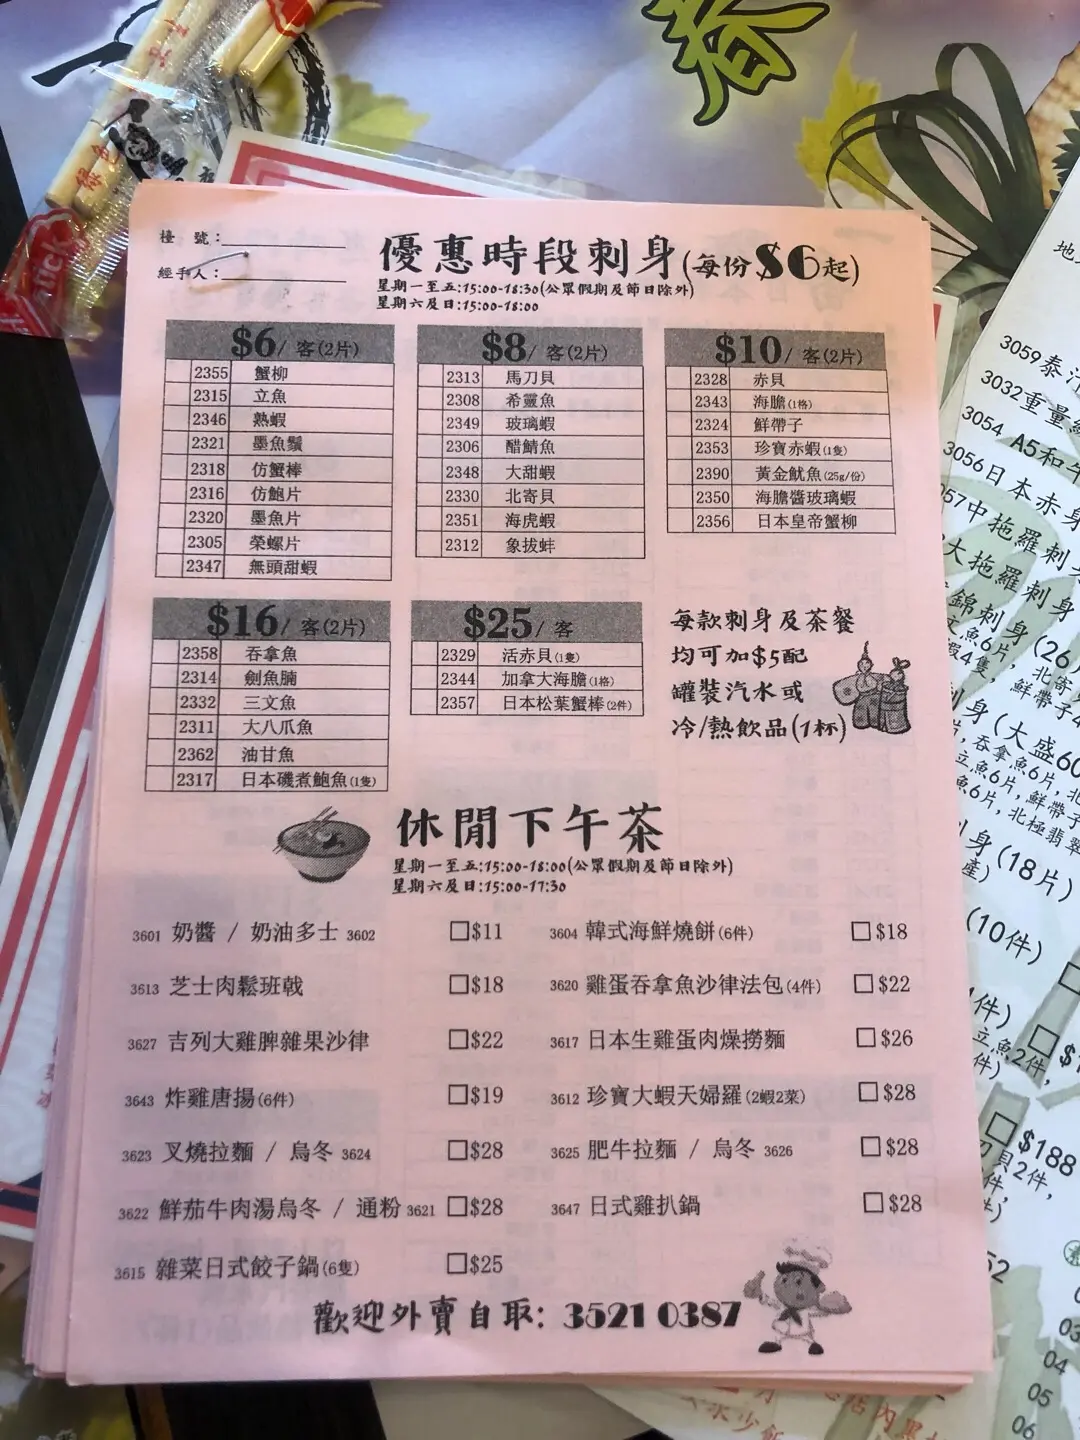 春
檯 號:
經手人:
優惠時段刺身(每份$6起)
星期一至五:15:00-18:30(公眾假期及節日除外)
星期六及日:15:00-18:00
$6/ 客(2片)
2355 蟹柳
2315 立魚
2346 熟蝦
2321 墨魚鬚
2318 仿蟹棒
2316 仿鮑片
2320 墨魚片
2305 榮螺片
2347 無頭甜蝦
$8/ 客(2片)
2313 馬刀貝
2308 希靈魚
2349 玻璃蝦
2306 醋鯖魚
2348 大甜蝦
2330 北寄貝
2351 海虎蝦
2312 象拔蚌
$10/ 客(2片)
2328 赤貝
2343 海膽(1格)
2324 鮮帶子
2353 珍寶赤蝦(1隻)
2390 黃金魷魚(25g/份)
2350 海膽醬玻璃蝦
2356 日本皇帝蟹柳
$16/ 客(2片)
2358 吞拿魚
2314 劍魚腩
2332 三文魚
2311 大八爪魚
2362 油甘魚
2317 日本磯煮鮑魚(1隻)
$25/ 客
2329 活赤貝(1隻)
2344 加拿大海膽(1格)
2357 日本松葉蟹棒(2件)
每款刺身及茶餐
均可加$5配
罐裝汽水或
冷/熱飲品(1杯)
休閒下午茶
星期一至五:15:00-18:00(公眾假期及節日除外)
星期六及日:15:00-17:30
3601 奶醬 / 奶油多士 3602 □$11
3604 韓式海鮮燒餅(6件) □$18
3613 芝士肉鬆班戟 □$18
3620 雞蛋吞拿魚沙律法包(4件) □$22
3627 吉列大雞脾雜果沙律 □$22
3617 日本生雞蛋肉燥撈麵 □$26
3643 炸雞唐揚(6件) □$19
3612 珍寶大蝦天婦羅(2蝦2菜) □$28
3623 叉燒拉麵 / 烏冬 3624 □$28
3625 肥牛拉麵 / 烏冬 3626 □$28
3622 鮮茄牛肉湯烏冬 / 通粉 3621 □$28
3647 日式雞扒鍋 □$28
3615 雜菜日式餃子鍋(6隻) □$25
歡迎外賣自取: 3521 0387
3059泰汁
3032重量級
3054 A5和牛
3056日本赤身
057中拖羅刺身
大拖羅刺身
錦刺身(26
文魚6片, 北寄
蝦4隻, 鮮帶子4
身(大盛60
, 吞拿魚6片, 北
立魚6片, 鮮帶子
魚6片, 北極翡翠
身(18片)
產)
(10件)
件)
立魚2件,
件)
□$188
貝2件,
件,
04
05
06